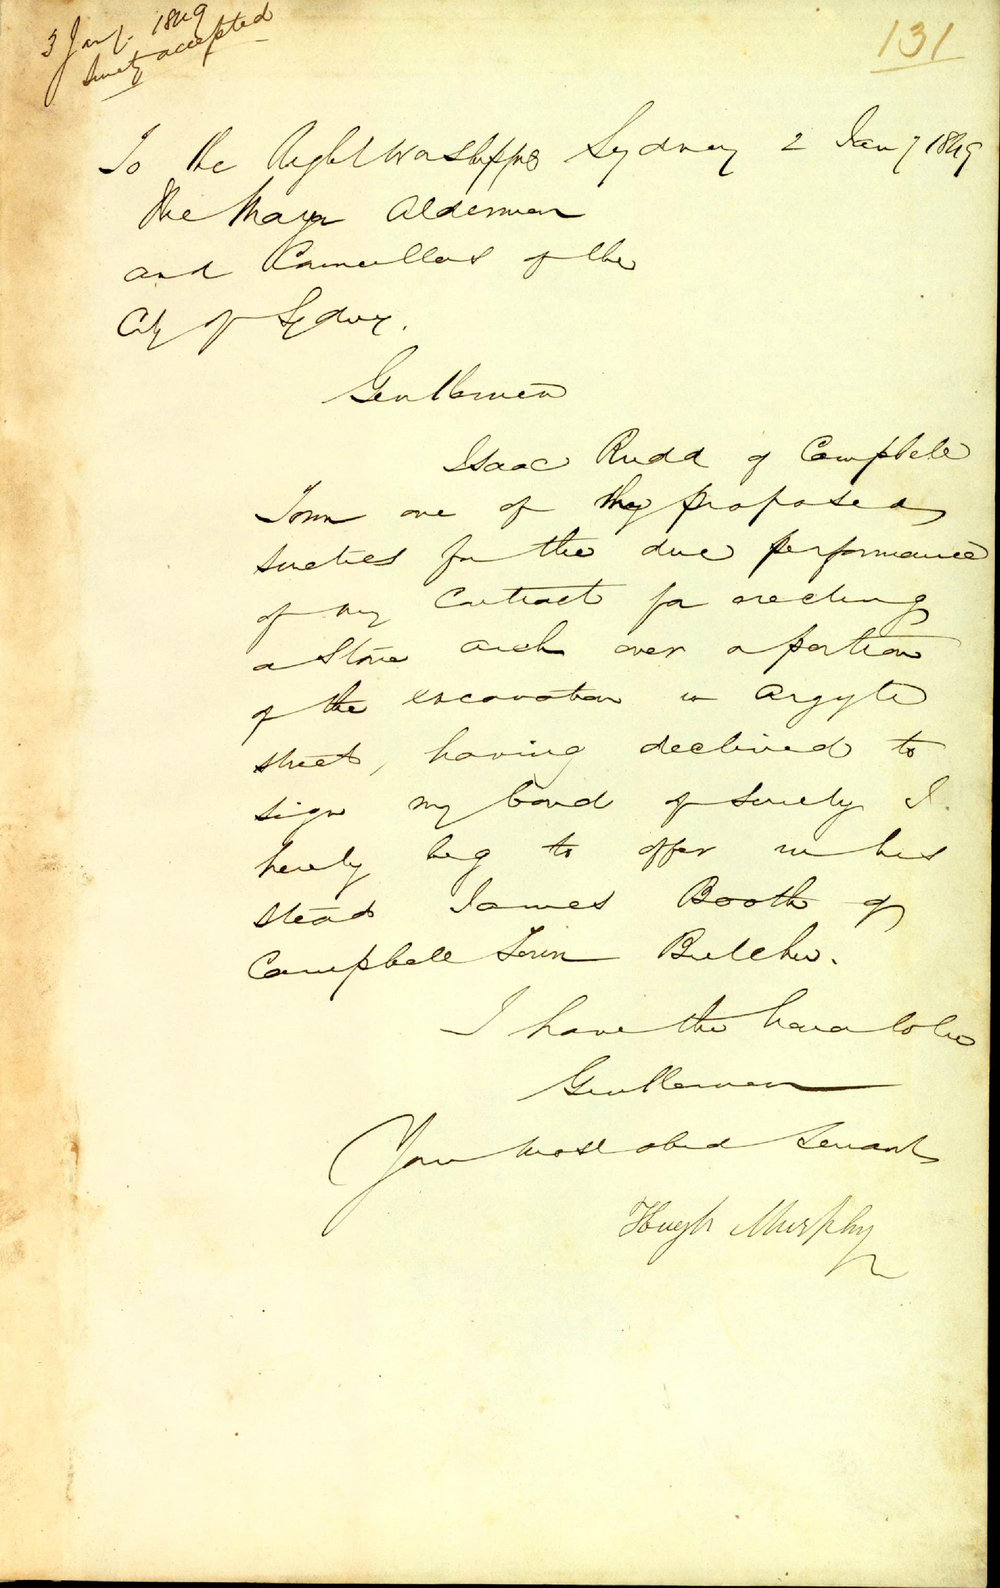 3 Jany. 1849
Surety accepted
131
To the Right Worshippful Sydney 2 Jany 1849
the Mayor Aldermen
and Councillors of the
City of Sydney.
Gentlemen
Isaac Rudd of Campbell
Town one of my proposed
sureties for the due performance
of my contract for erecting
a Stone arch over a portion
of the excavation in Argyle
street, having declined to
sign my bond of surety I.
hereby beg to offer in his
stead James Booth of
Campbell Town Butcher.
I have the honor to be
Gentlemen
Your most obed Servant
Hugh Murphy